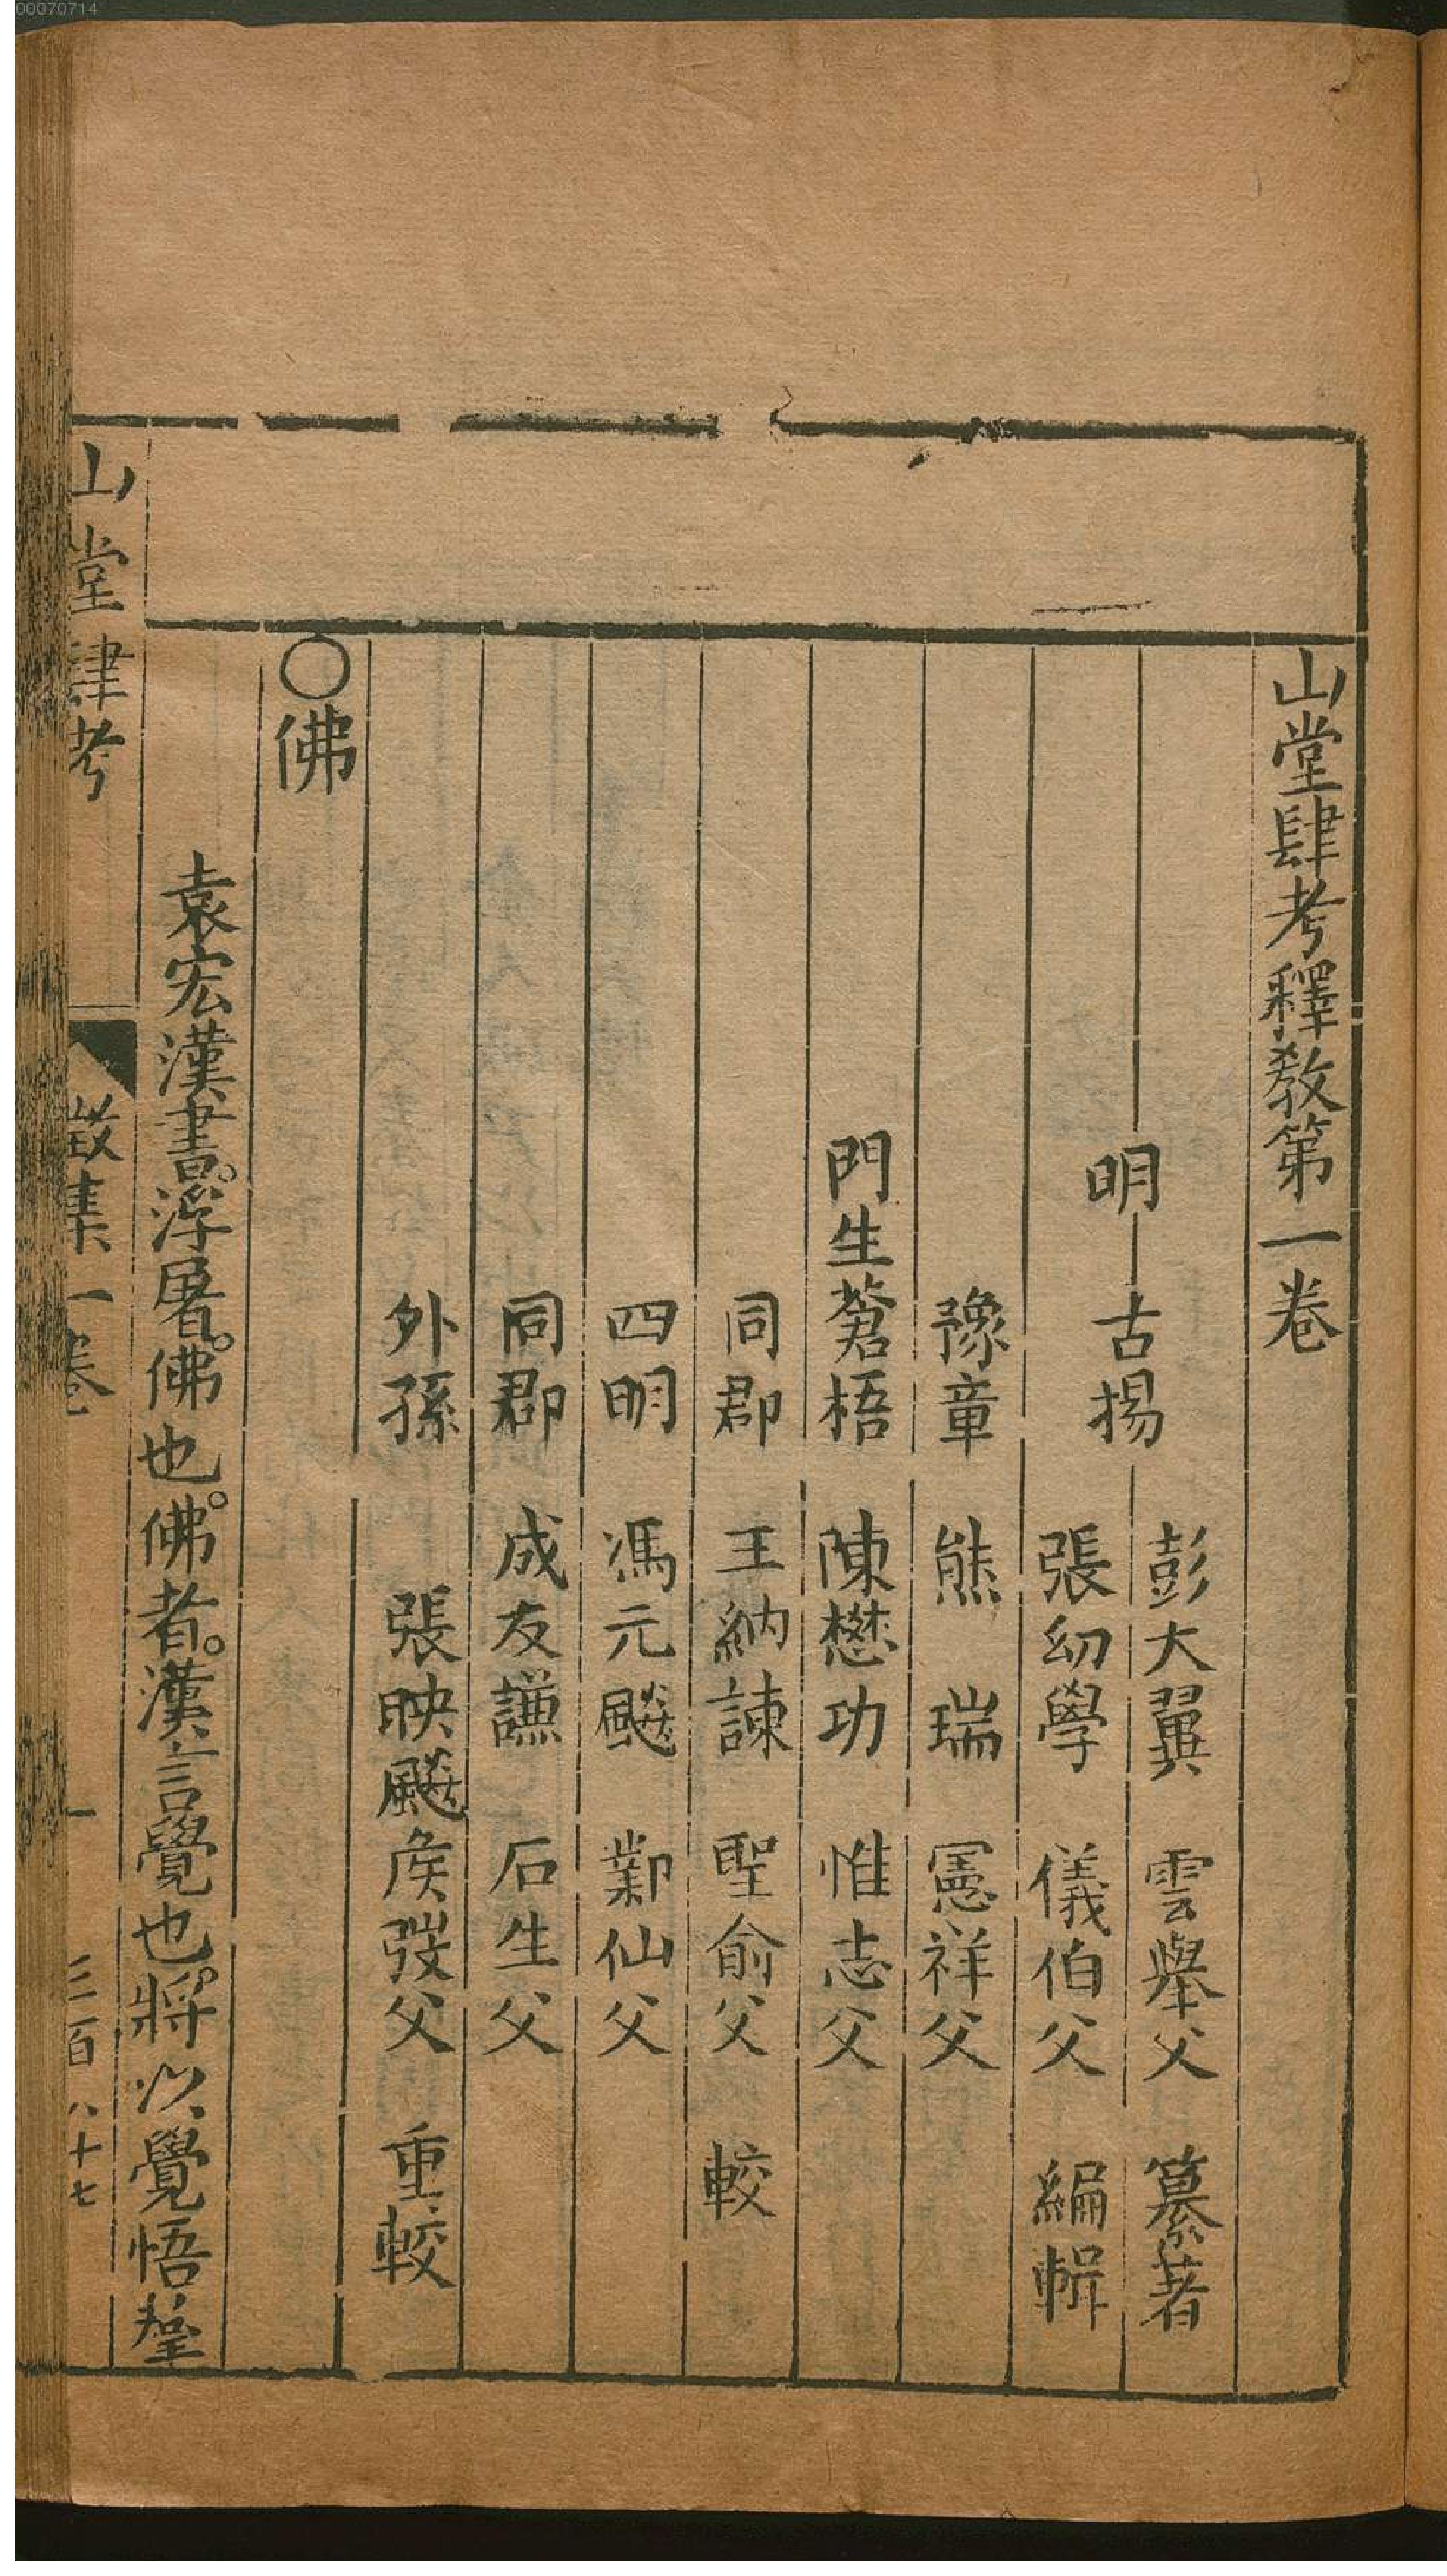 00070714
山堂肆考釋教第一卷
明 古揚
彭大翼 雲舉父 纂著
張幼學 儀伯父 編輯
豫章 熊 瑞 憲祥父
門生蒼梧 陳懋功 惟志父
同郡 王納諫 聖俞父 較
四明 馮元飈 鄴仙父
同郡 成友謙 石生父
外孫 張映颷矦弢父 重較
〇佛
袁宏漢書。浮屠。佛也。佛者。漢言覺也。將以覺悟羣
山堂肆考 徵集一卷 一 三百八十七